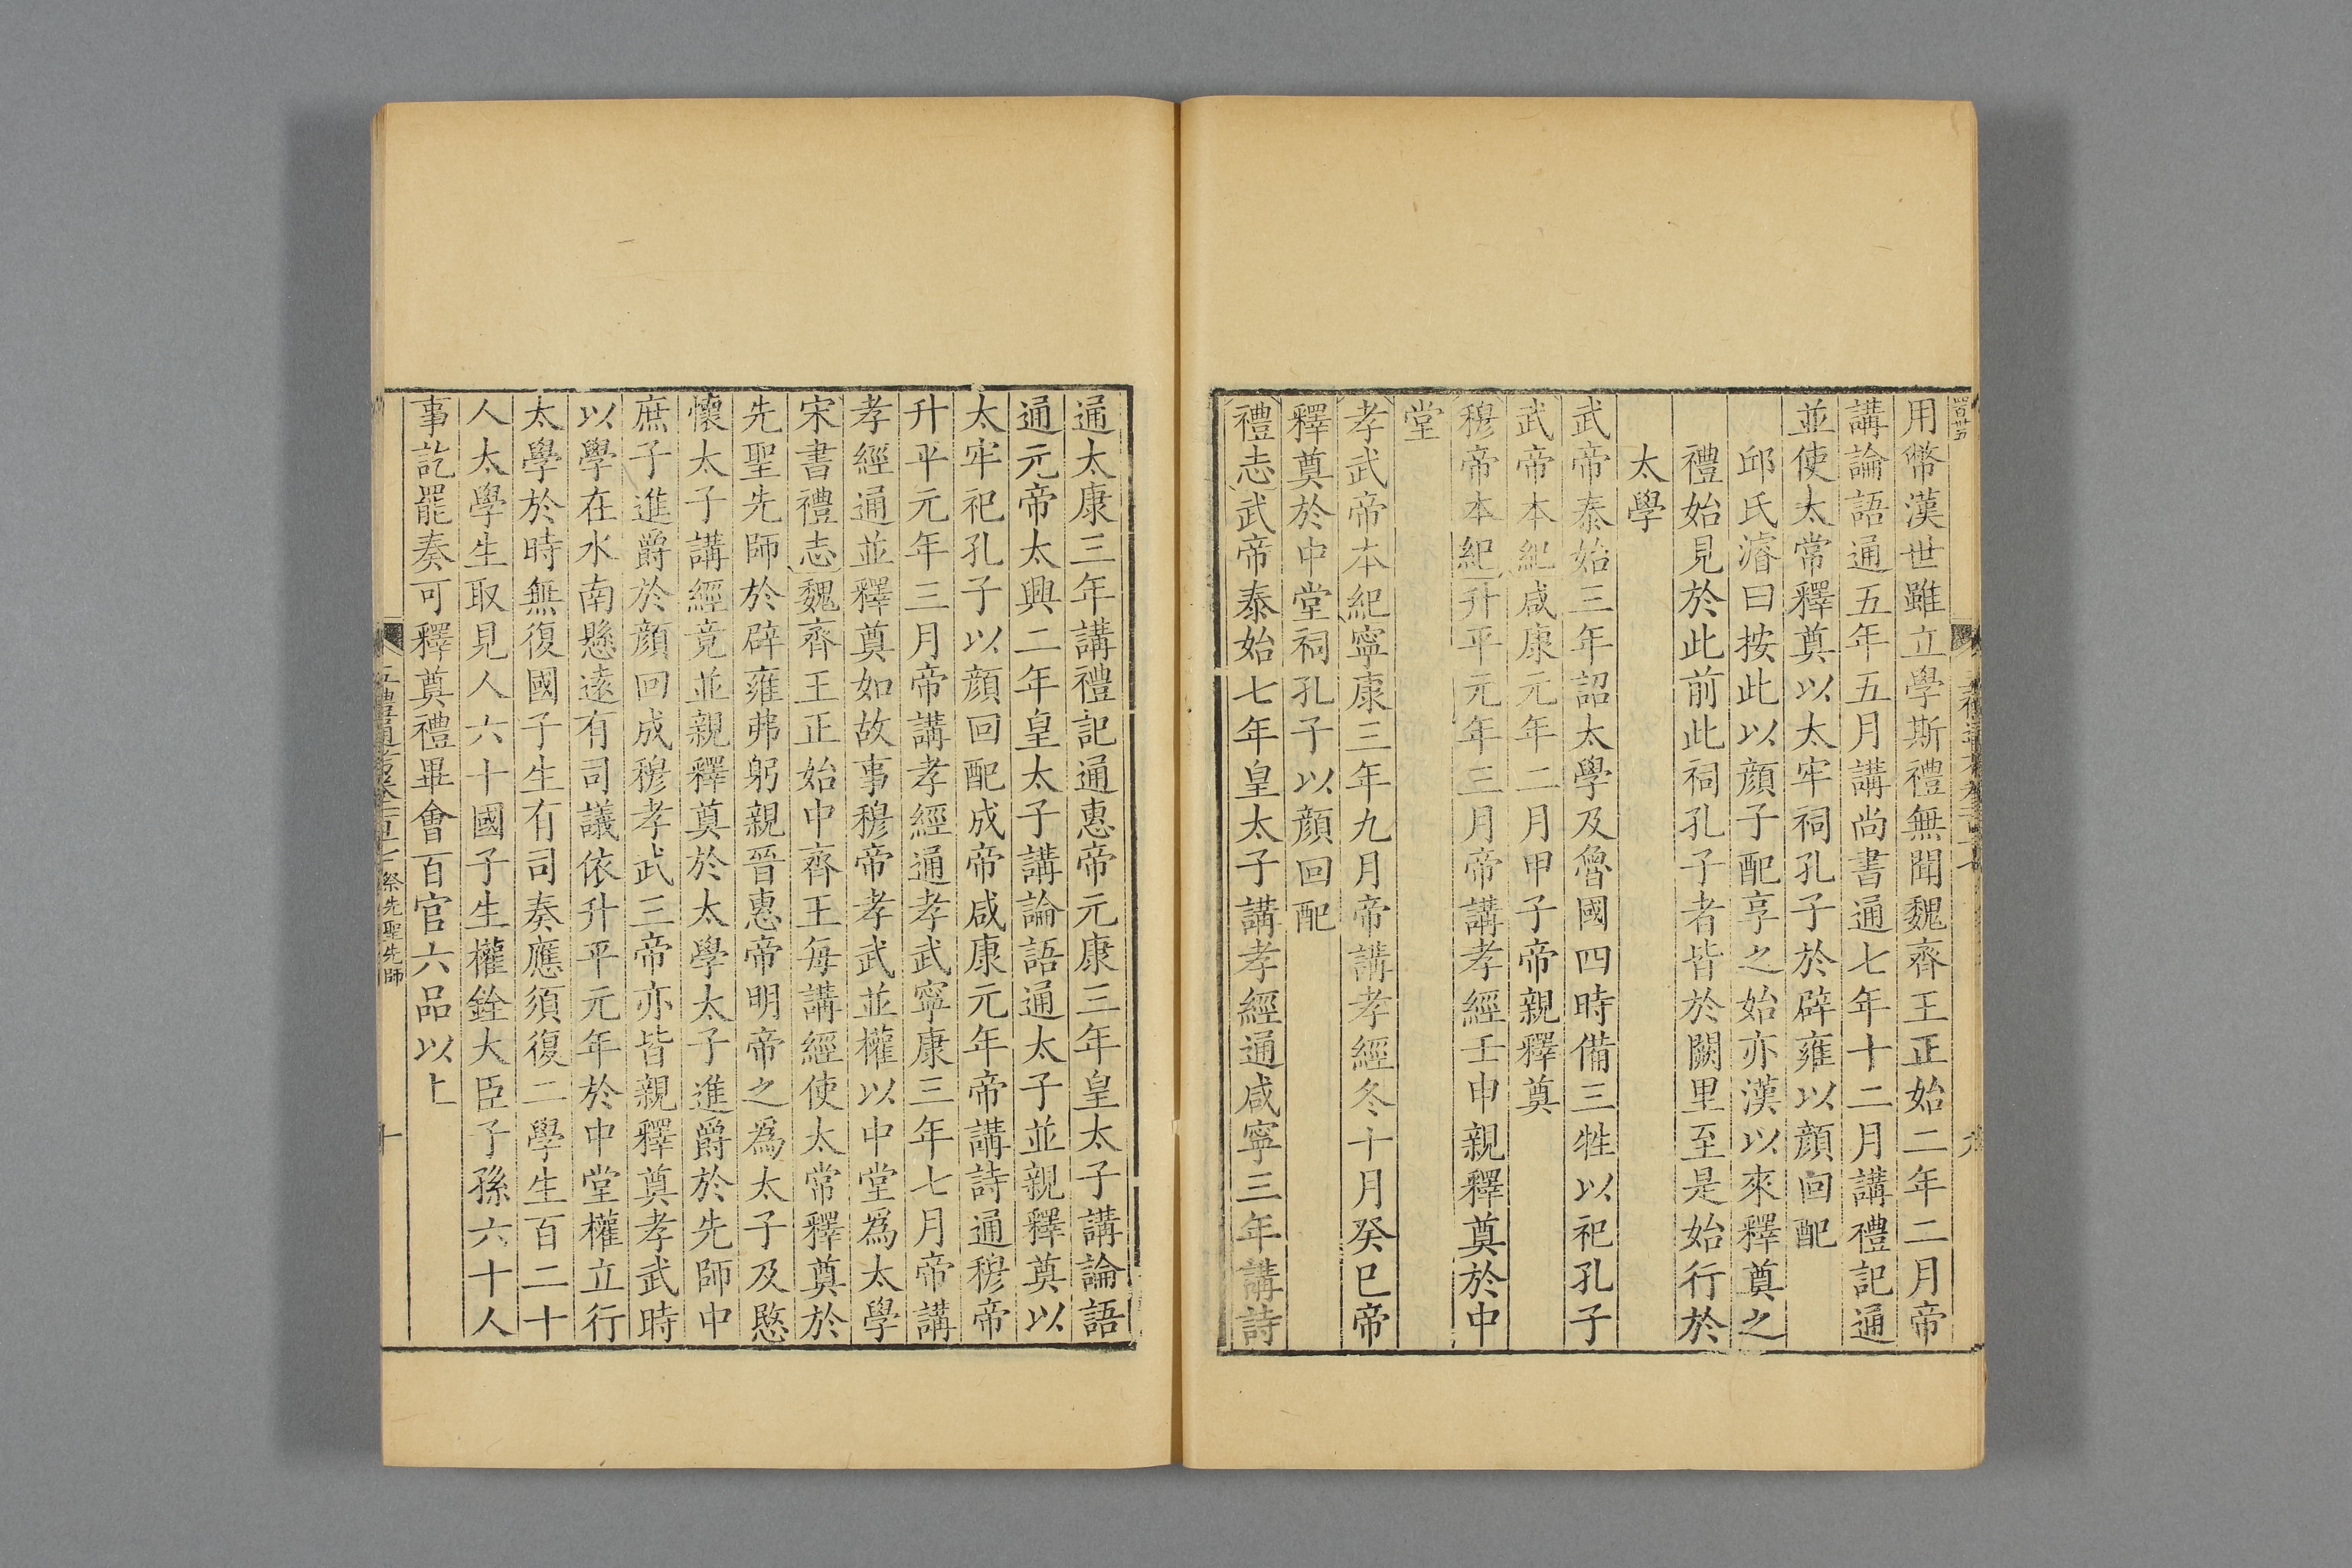 用幣漢世雖立學斯禮無聞魏齊王正始二年二月帝
講論語通五年五月講尚書通七年十二月講禮記通
並使太常釋奠以太牢祠孔子於辟雍以顔回配
邱氏濬曰按此以顔子配享之始亦漢以來釋奠之
禮始見於此前此祠孔子者皆於闕里至是始行於
太學
武帝泰始三年詔太學及魯國四時備三牲以祀孔子
武帝本紀咸康元年二月甲子帝親釋奠
穆帝本紀升平元年三月帝講孝經壬申親釋奠於中
堂
孝武帝本紀寧康三年九月帝講孝經冬十月癸巳帝
釋奠於中堂祠孔子以顔回配
禮志武帝泰始七年皇太子講孝經通咸寧三年講詩
通太康三年講禮記通惠帝元康三年皇太子講論語
通元帝太興二年皇太子講論語通太子並親釋奠以
太牢祀孔子以顔回配成帝咸康元年帝講詩通穆帝
升平元年三月帝講孝經通孝武寧康三年七月帝講
孝經通並釋奠如故事穆帝孝武並權以中堂爲太學
宋書禮志魏齊王正始中齊王每講經使太常釋奠於
先聖先師於辟雍弗躬親晉惠帝明帝之爲太子及愍
懷太子講經竟並親釋奠於太學太子進爵於先師中
庶子進爵於顔回成穆孝武三帝亦皆親釋奠孝武時
以學在水南懸遠有司議依升平元年於中堂權立行
太學於時無復國子生有司奏應須復二學生百二十
人太學生取見人六十國子生權銓大臣子孫六十人
事訖罷奏可釋奠禮畢會百官六品以上
祭先聖先師
十